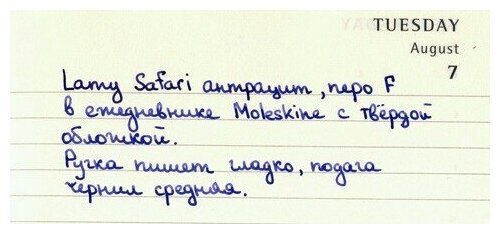 TUESDAY
August
7
Lamy Safari антрацит, перо F
в ежедневнике Moleskine с твёрдой
обложкой.
Ручка пишет гладко, подача
чернил средняя.